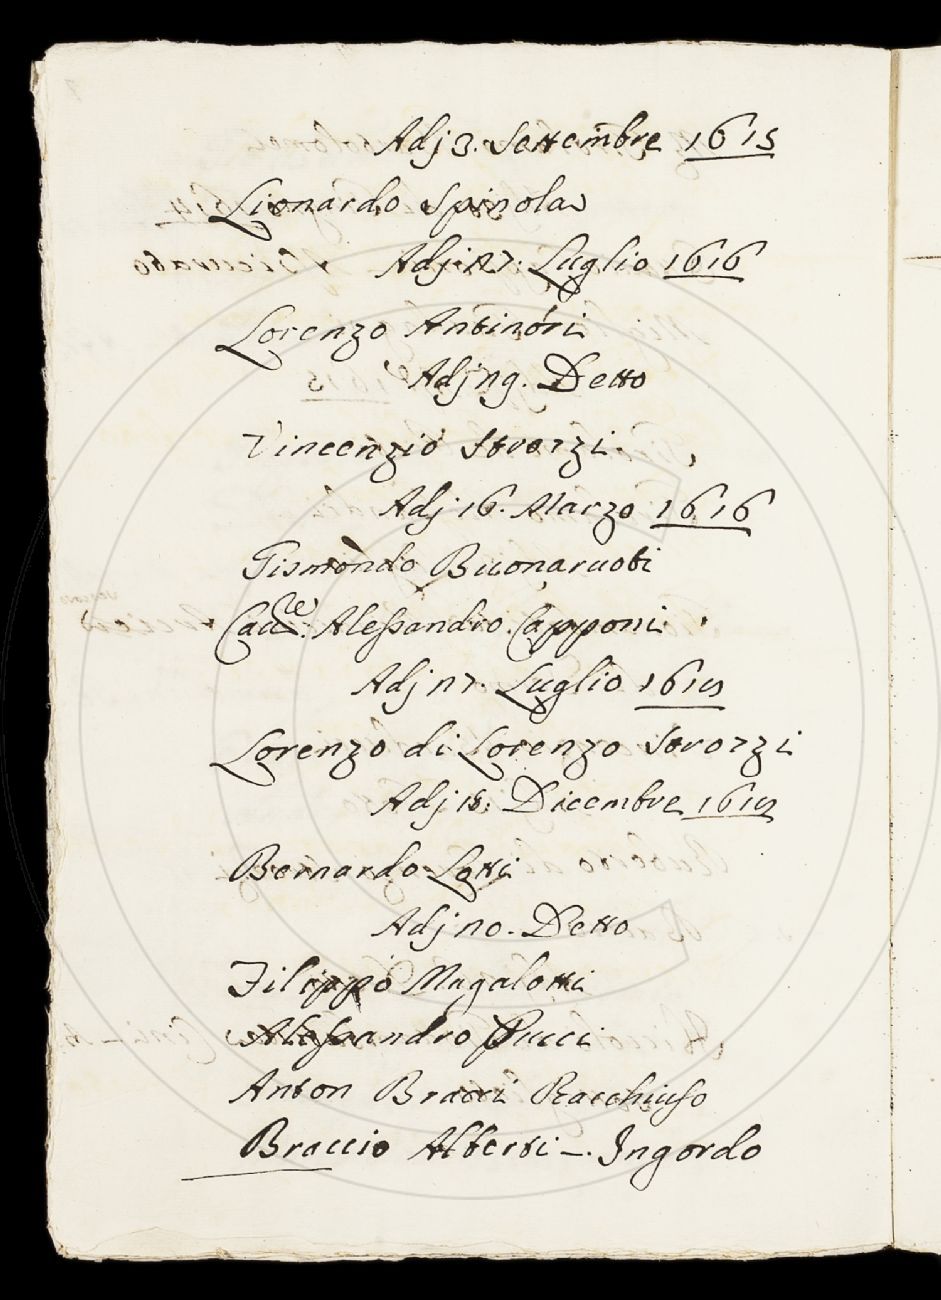 Adj 3. Settembre 1615
Lionardo Spinola
Adj 27. Luglio 1616
Lorenzo Antinori
Adj 29. Detto
Vincenzio Strozzi
Adj 16. Marzo 1616
Gismondo Buonaruoti
Alessandro Capponi
Adj 27. Luglio
Lorenzo di Lorenzo Strozzi
Adj 18. Dicembre
Bernardo Lotti
Adj 20. Detto
Filippo Magalotti
Alessandro Pucci
Anton Bracci Racchiuso
Braccio Alberti –. Ingordo